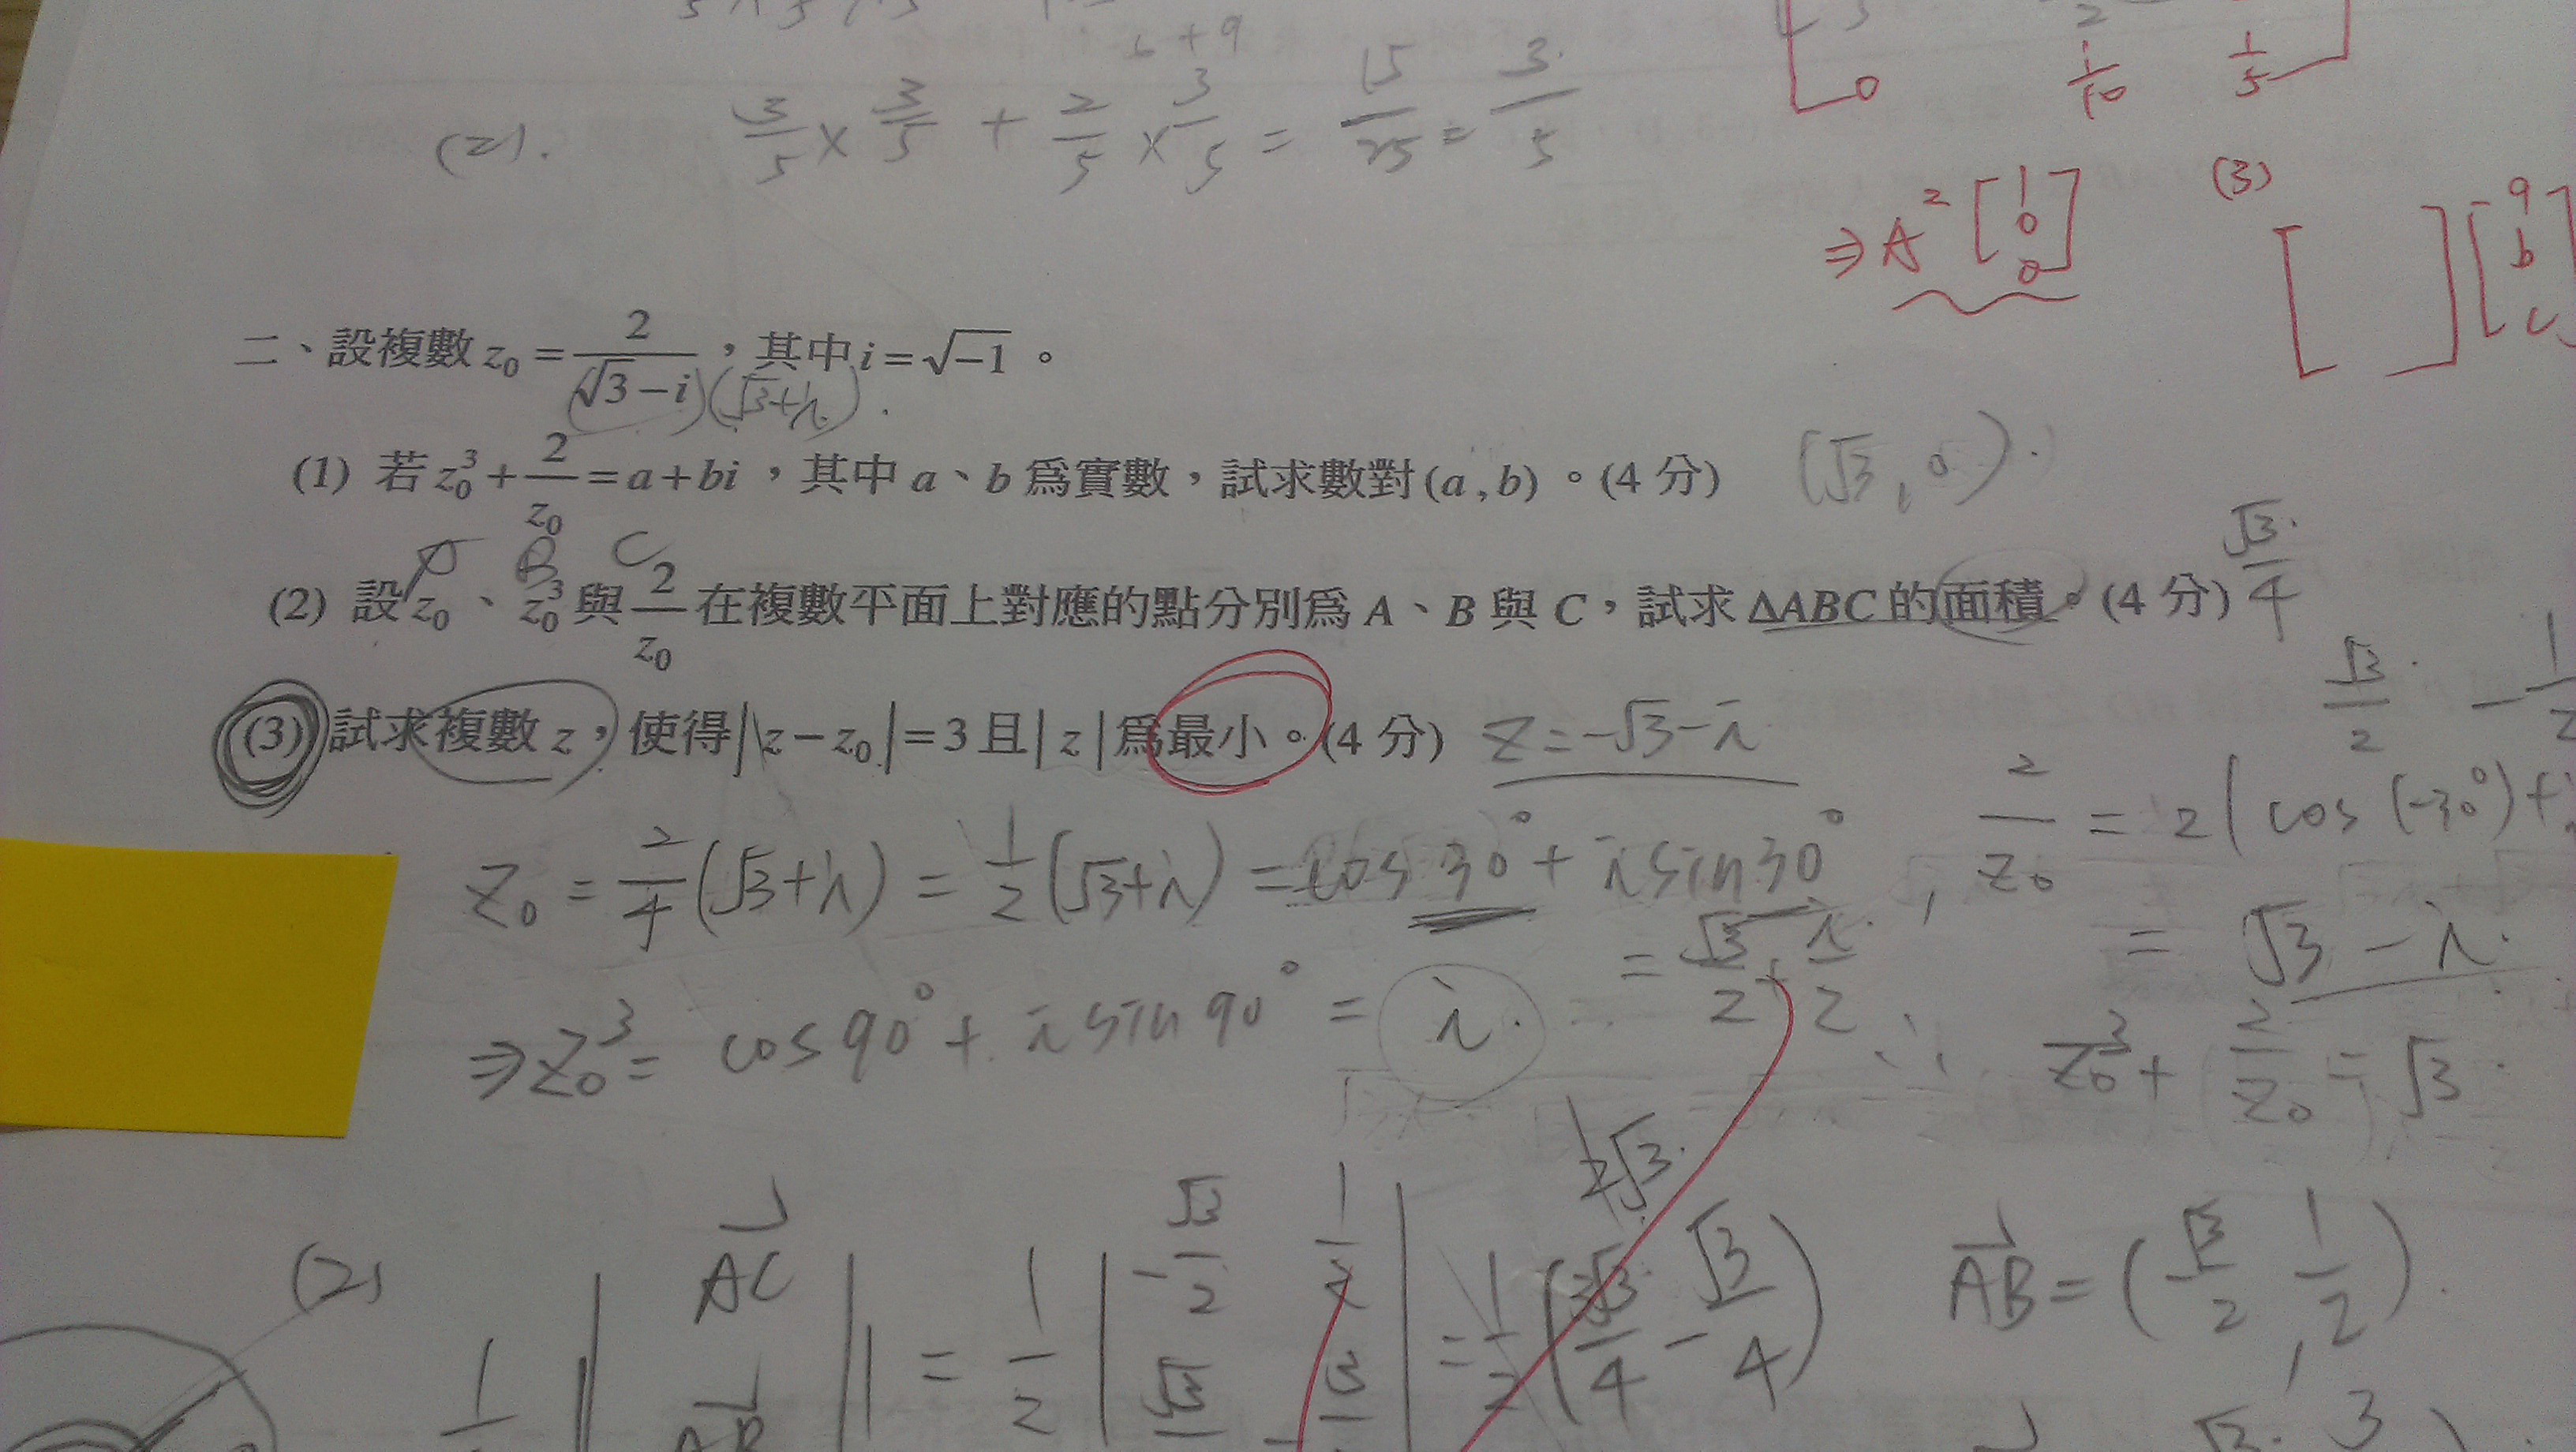 6 + 9
(2). 3/5 × 3/5 + 2/5 × 3/5 = 15/25 = 3/5
0 1/10 1/5
⇒ A² [1 0 0]
(3) [ ] [a b c]
二、設複數 z₀ = 2/(√3 − i),其中 i = √−1。
(√3+i)
(1) 若 z₀³ + 2/z₀ = a + bi,其中 a、b 為實數,試求數對 (a , b)。(4 分) (√3, 0).
A B C
(2) 設 z₀、z₀³ 與 2/z₀ 在複數平面上對應的點分別為 A、B 與 C,試求 ΔABC 的面積。(4 分) √3/4
(3) 試求複數 z,使得 |z − z₀| = 3 且 | z | 為最小。(4 分) Z = −√3 − i
Z₀ = 2/4 (√3+i) = 1/2 (√3+i) = cos 30° + i sin 30°, 2/Z₀ = 2( cos (−30°) +
= √3/2 + i/2 = √3 − i.
⇒ Z₀³ = cos 90° + i sin 90° = i. ∴ Z₀³ + 2/Z₀ = √3
2√3
(2) AC = 1/2 | −√3/2 1/2 | = 1/2 ( 3√3/4 − √3/4 ) AB = ( √3/2, 1/2 ).
AB